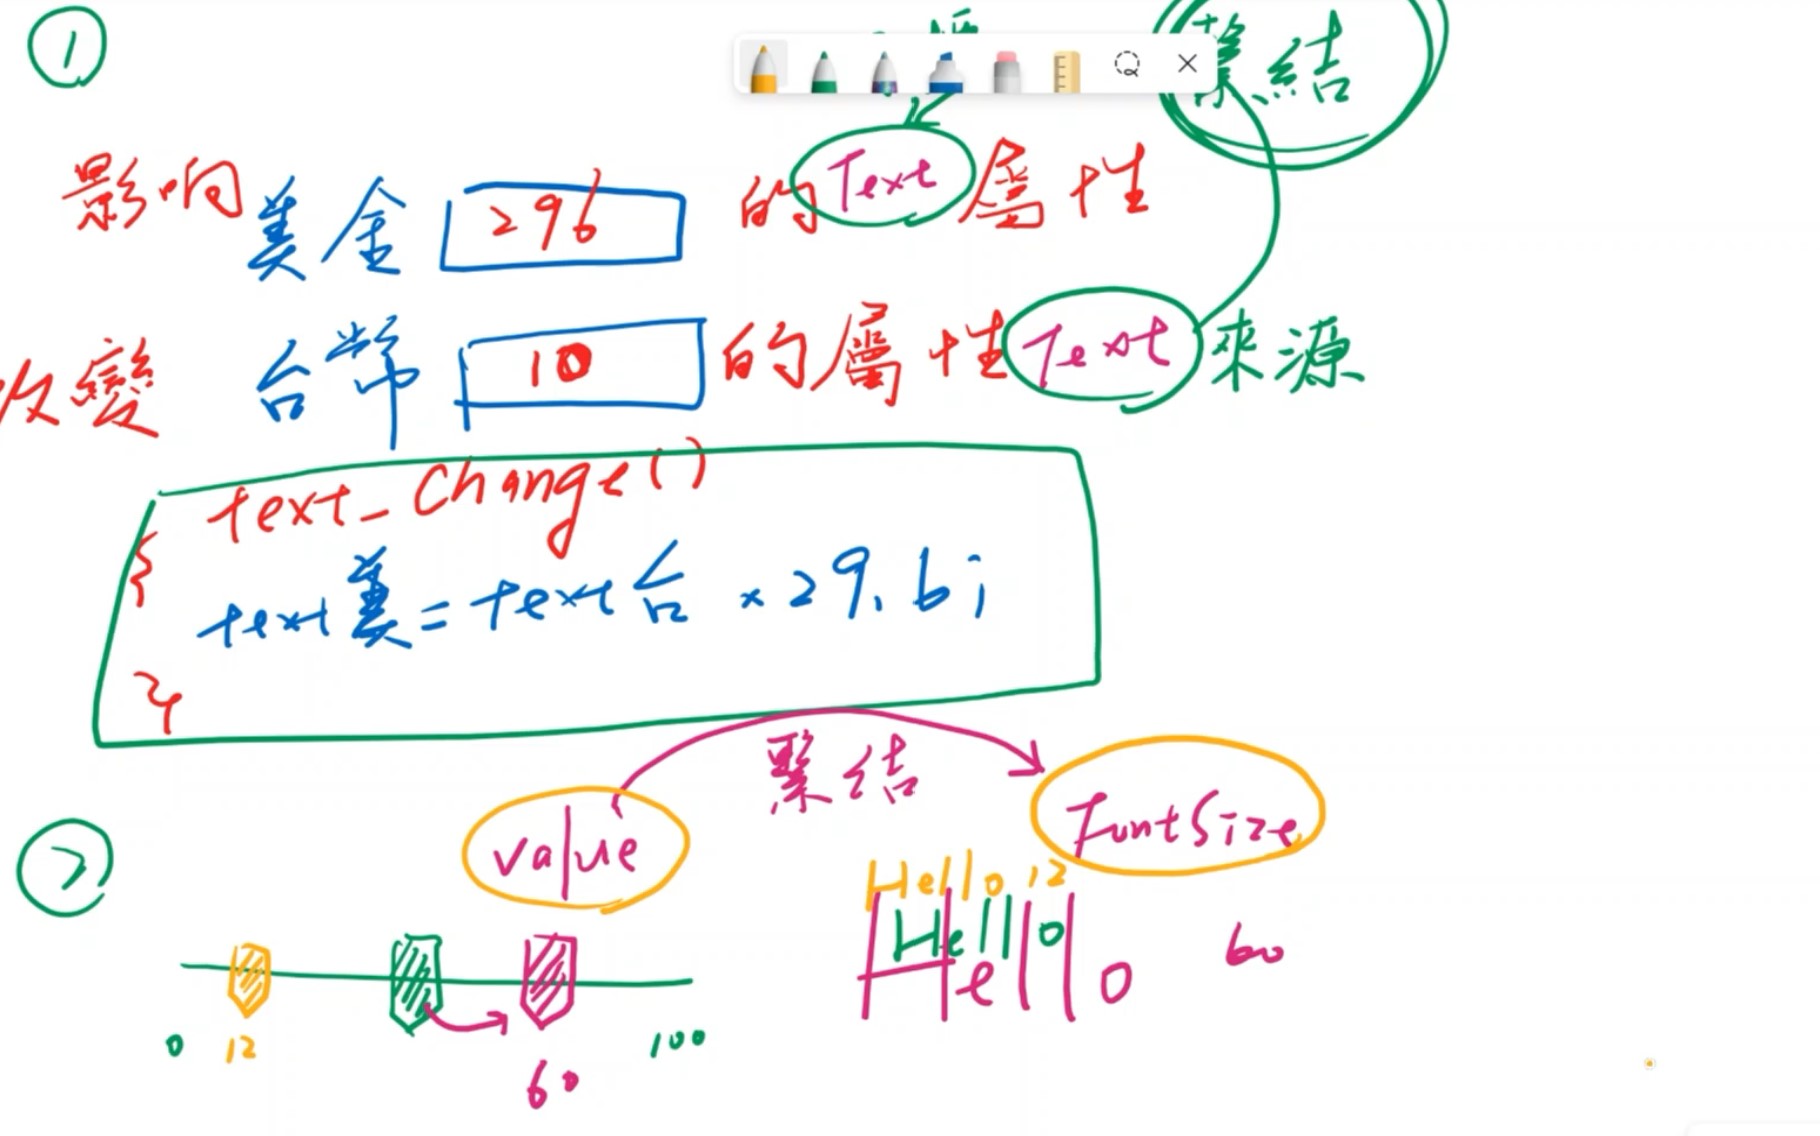 ①
繫結
影响 美金 296 的 Text 屬性
改變 台幣 10 的屬性 Text 來源
text_Change()
{
text美 = text台 × 29.6;
}
繫結
② value FontSize
Hello 12
Hello
Hello 60
0 12 60 100